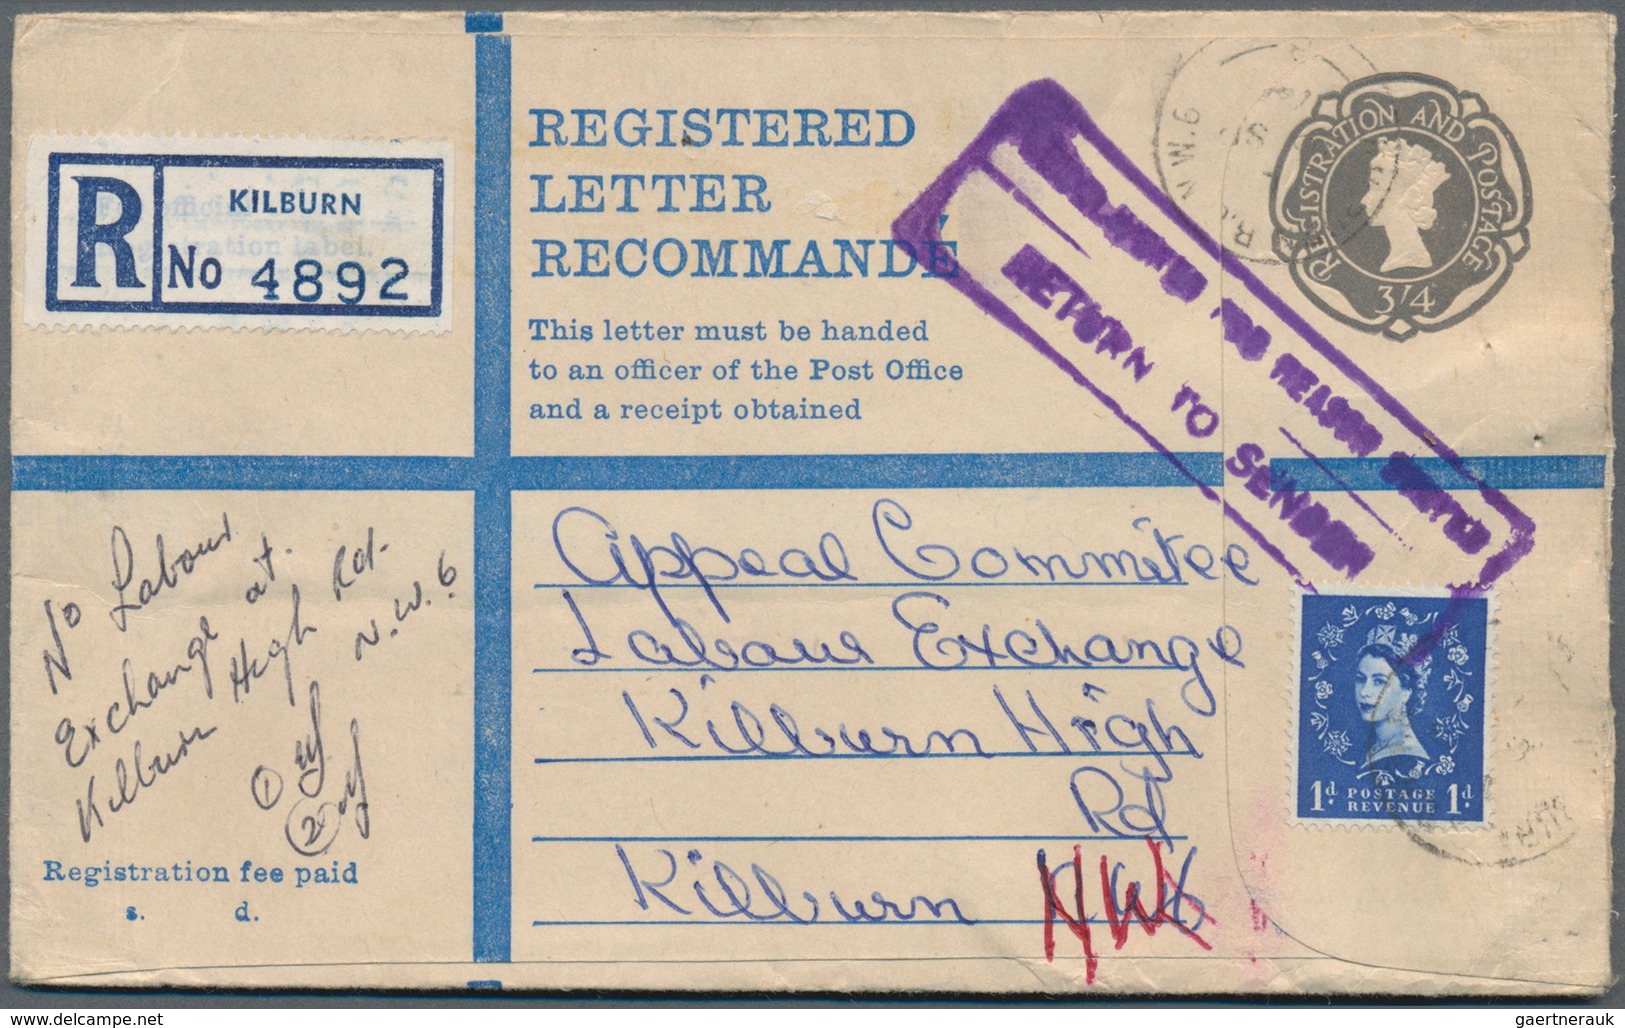 REGISTERED
LETTER
RECOMMANDÉ
This letter must be handed
to an officer of the Post Office
and a receipt obtained
R
KILBURN
No 4892
registration label.
REGISTRATION AND POSTAGE
3/4
N.W.6
FOR REASON STATED
RETURN TO SENDER
Appeal Commitee
Labour Exchange
Kilburn High
Rd
Kilburn NW6
NW
No Labour
Exchange at
Kilburn High Rd.
N.W.6
1
2
Registration fee paid
s. d.
1d POSTAGE 1d
REVENUE
www.delcampe.net
gaertnerauk